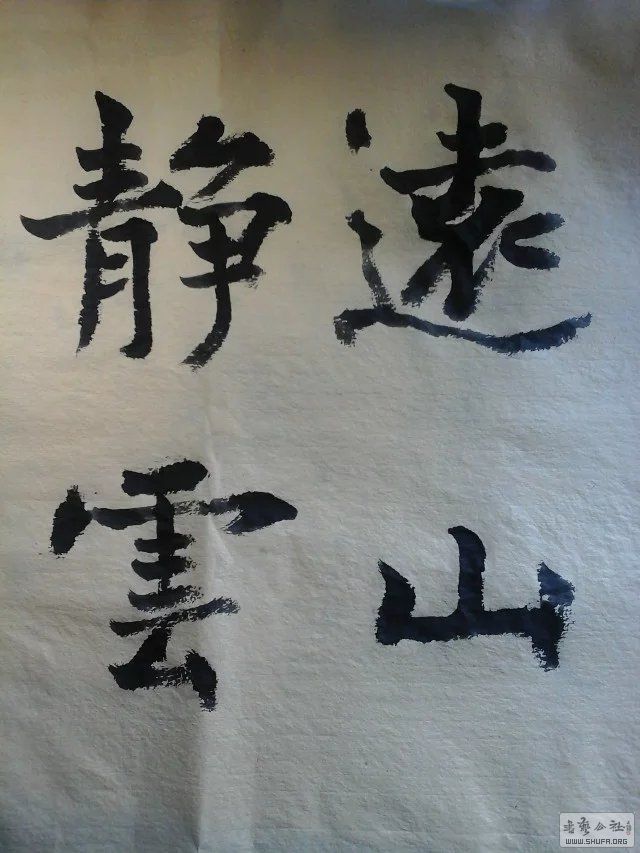 遠山
静雲
书艺公社
WWW.SHUFA.ORG